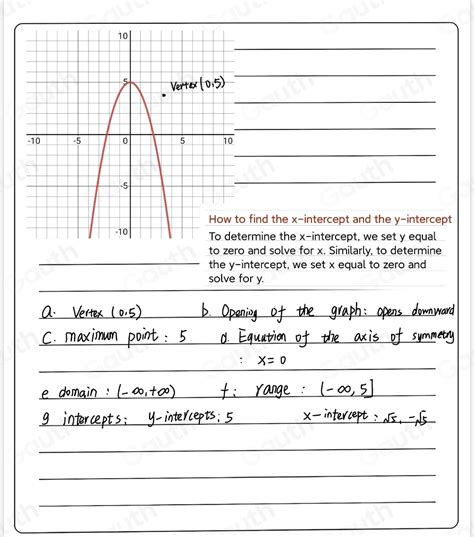 10
5
Vertex (0,5)
-10 -5 0 5 10
-5
-10
How to find the x-intercept and the y-intercept
To determine the x-intercept, we set y equal
to zero and solve for x. Similarly, to determine
the y-intercept, we set x equal to zero and
solve for y.
a. Vertex (0.5) b. Opening of the graph: opens downward
C. maximum point: 5 d. Equation of the axis of symmetry
: x=0
e domain: (-∞,+∞) f: range: (-∞, 5]
g intercepts: y-intercepts: 5 x-intercept: √5, -√5
Gauth